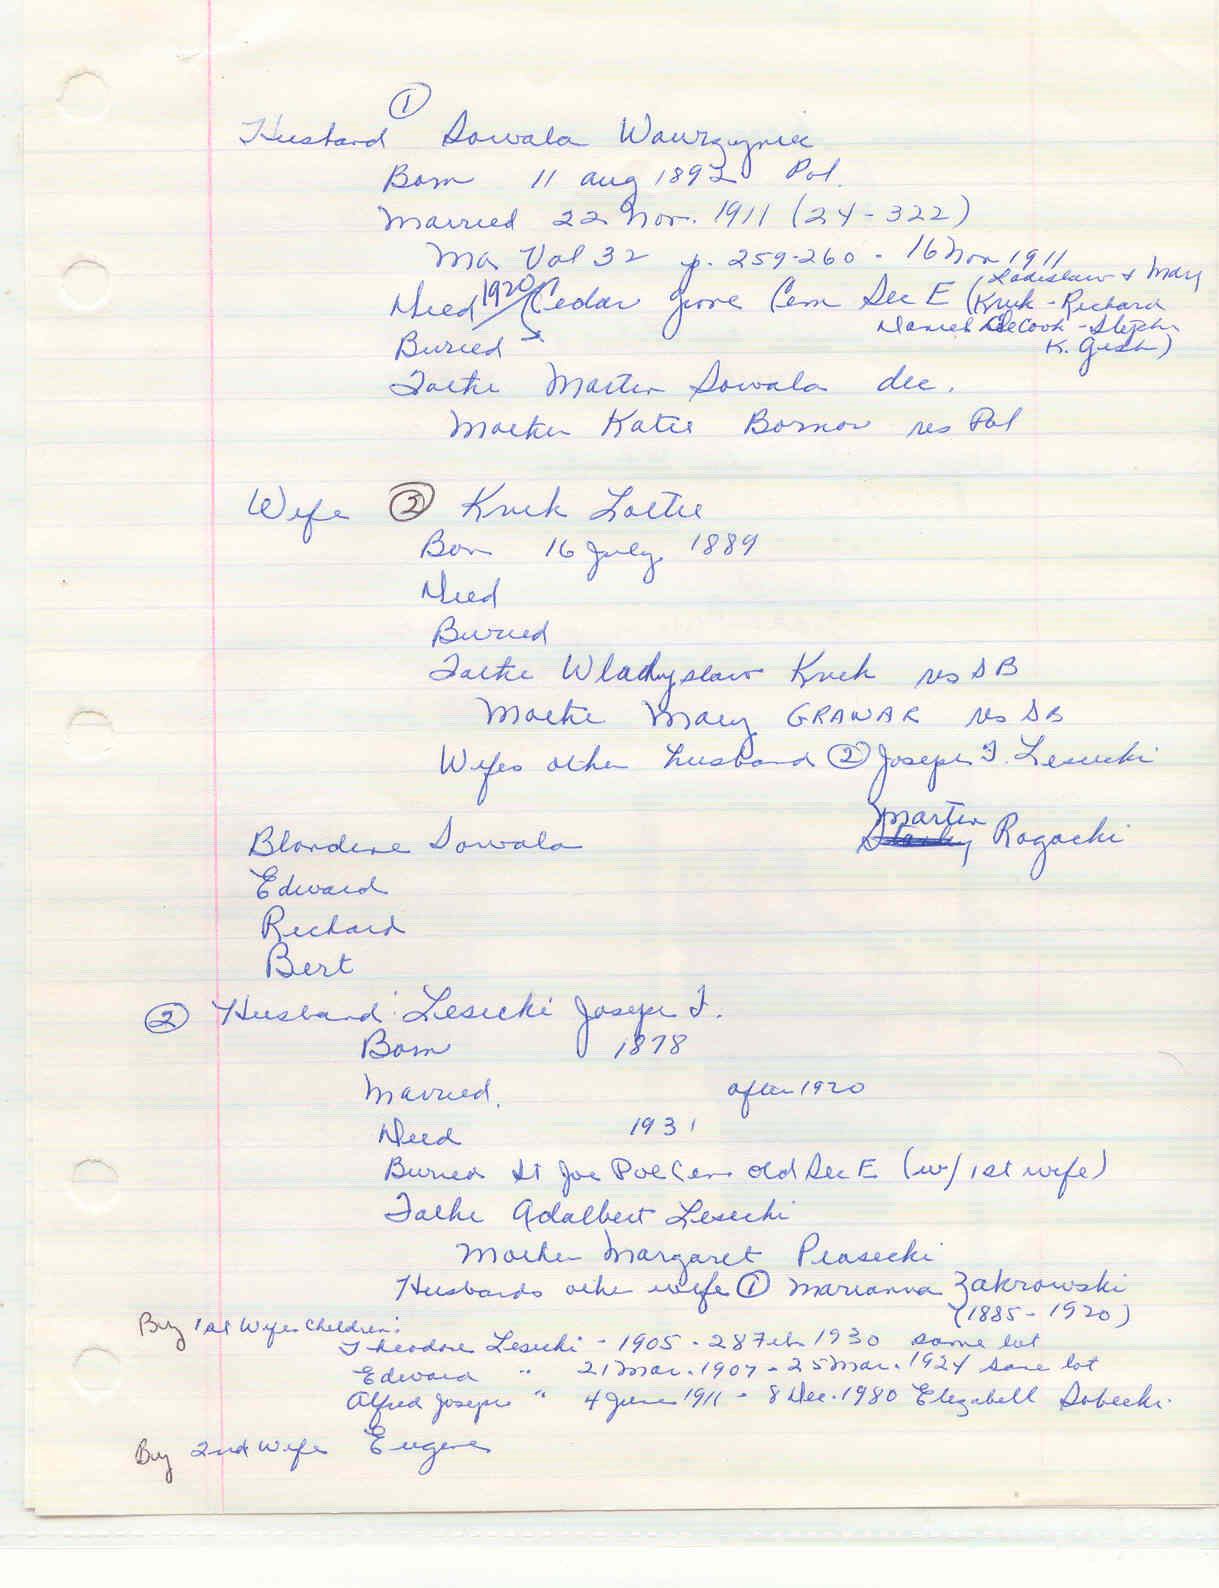 ①
Husband Sowala Wawrzyniec
Born 11 Aug 1892 Pol.
Married 22 Nov. 1911 (24-322)
Ma Vol 32 p. 259-260 - 16 Nov 1911
Died 1920 Cedar Grove Cem Sec E (Ladislaw & Mary
Kruk - Richard
Daniel DeCook - Stephen
K. Gish)
Buried
Father Martin Sowala dec.
Mother Katie Bornov res Pol
Wife ③ Kruk Lottie
Born 16 July 1889
Died
Buried
Father Wladyslaw Kruk res SB
Mother Mary GRAWAR res SB
Wifes other husband ② Joseph F. Lesicki
Martin
Stanley Rogacki
Blandine Sowala
Edward
Richard
Bert
② Husband: Lesicki Joseph F.
Born 1878
Married. after 1920
Died 1931
Buried St Joe Pol Cem old Sec E (w/ 1st wife)
Father Adalbert Lesicki
Mother Margaret Piasecki
Husbands other wife ① Marianna Zakrowski
(1885-1920)
By 1st Wife Children:
Theodore Lesicki - 1905 - 28 Feb 1930 same lot
Edward " 21 Mar. 1907 - 25 Mar. 1924 same lot
Alfred Joseph " 4 June 1911 - 8 Dec. 1980 Elizabell Sobecki.
By 2nd Wife Eugene